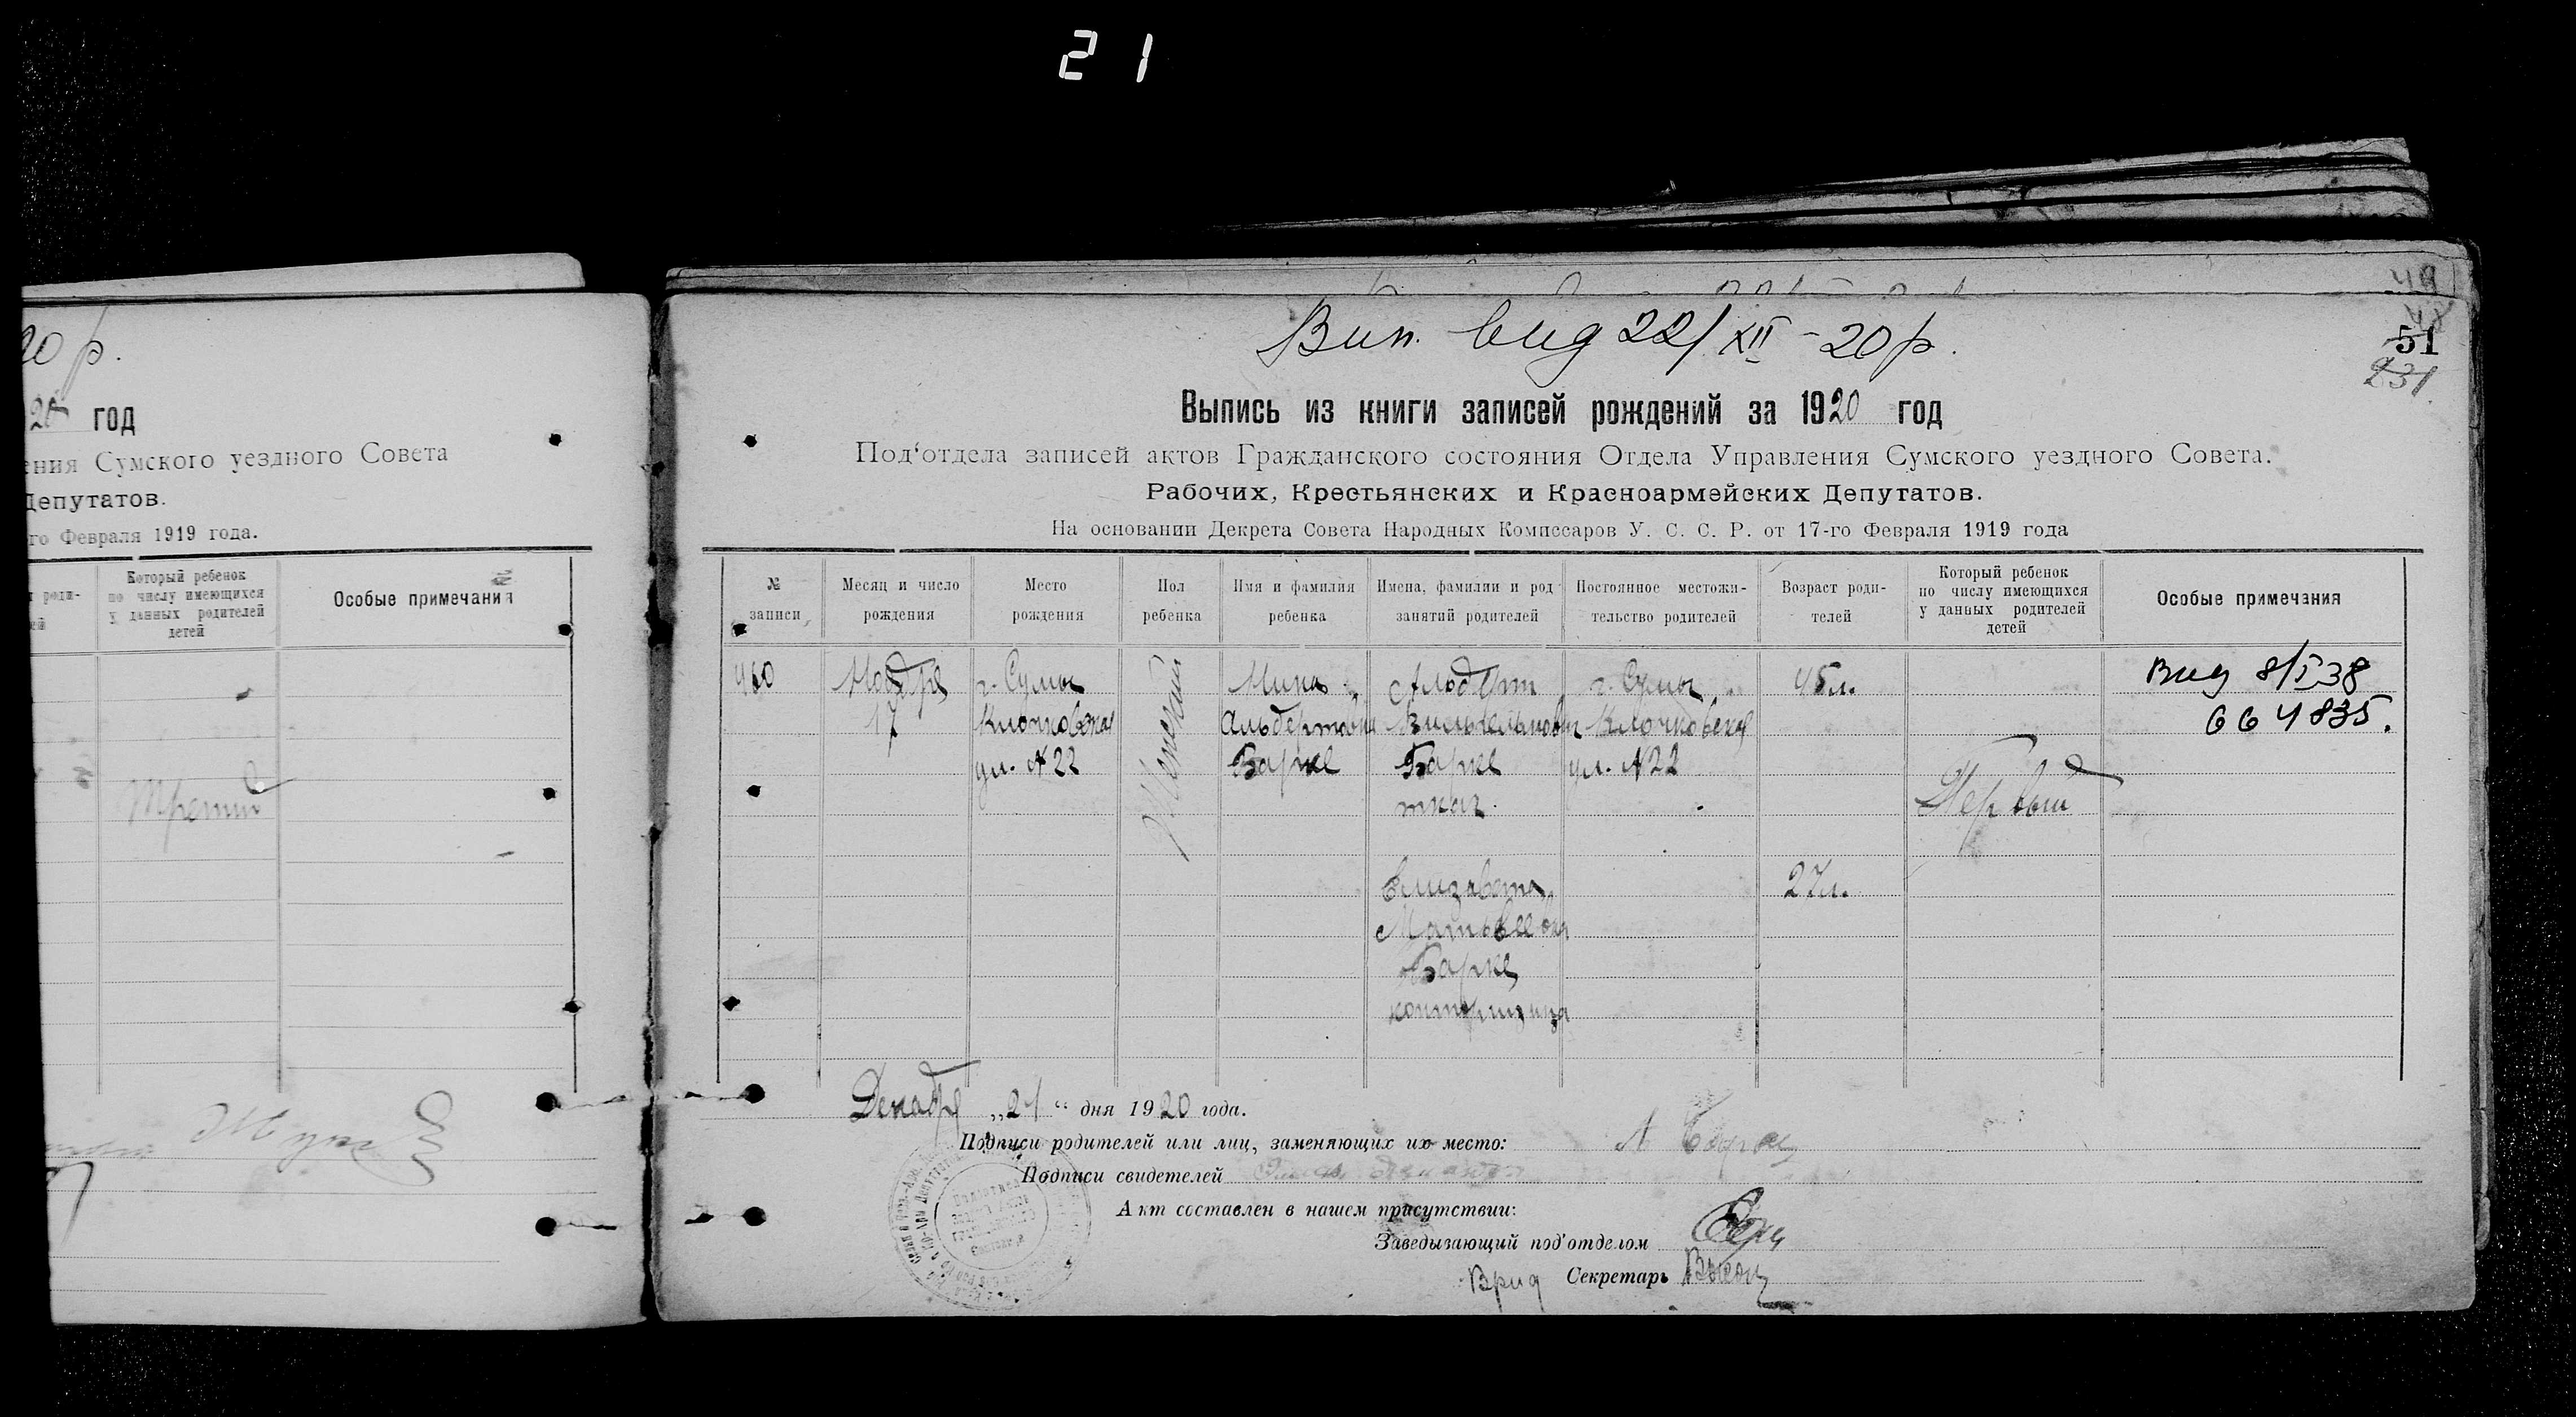 21
20 р.
20 год
ения Сумского уездного Совета
Депутатов.
го Февраля 1919 года.
роди-
ей
Который ребенок
по числу имеющихся
у данных родителей
детей
Особые примечания
Третий
49
51
231
Вип. вид 22/XII-20 р.
Выпись из книги записей рождений за 1920 год
Под‘отдела записей актов Гражданского состояния Отдела Управления Сумского уездного Совета.
Рабочих, Крестьянских и Красноармейских Депутатов.
На основании Декрета Совета Народных Комиссаров У. С. С. Р. от 17-го Февраля 1919 года
№
записи
Месяц и число
рождения
Место
рождения
Пол
ребенка
Имя и фамилия
ребенка
Имена, фамилии и род
занятий родителей
Постоянное местожи-
тельство родителей
Возраст роди-
телей
Который ребенок
по числу имеющихся
у данных родителей
детей
Особые примечания
460
Ноября
17
г. Сумы
Клочковская
ул. №22
Женский
Мина
Альбертовна
Барке
Альберт
Вильгельмович
Барке
ткач.
Елизавета
Матвеевна
Барке
конторщица
г. Сумы
Клочковская
ул. №22
45 л.
27 л.
Первый
Вид 8/I 38
664835.
Декабря „21“ дня 1920 года.
Подписи родителей или лиц, заменяющих их место:
Подписи свидетелей
Акт составлен в нашем присутствии:
Заведывающий под'отделом
Врид Секретарь